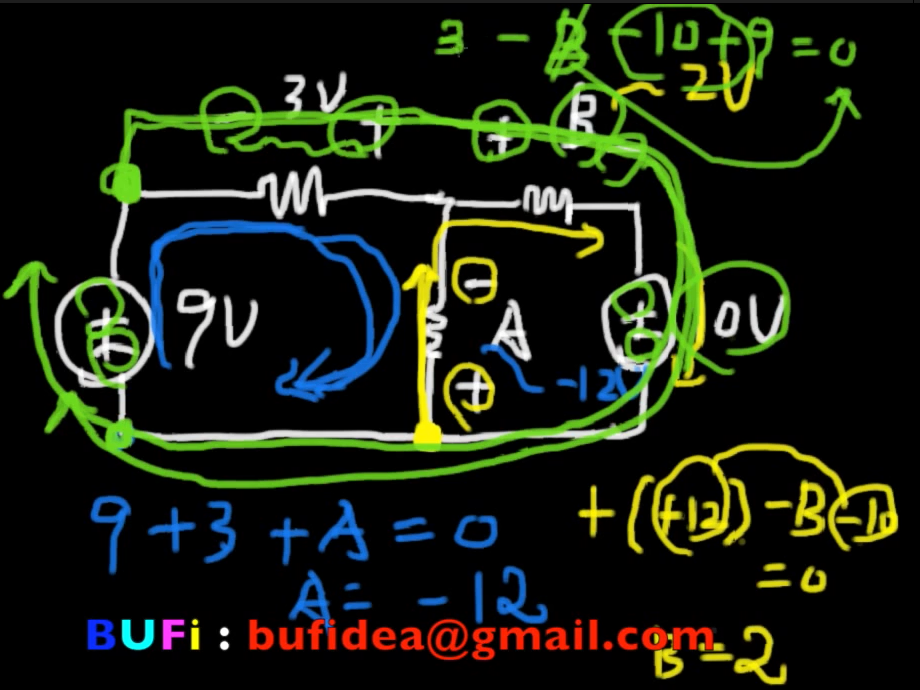 3 - B -10+9 = 0
- 2V
3V
+
+
B
9V
+
-
A
+
+
0V
-12
9+3+A=0
A= -12
+(+12)-B-10
=0
B=2
BUFi : bufidea@gmail.com